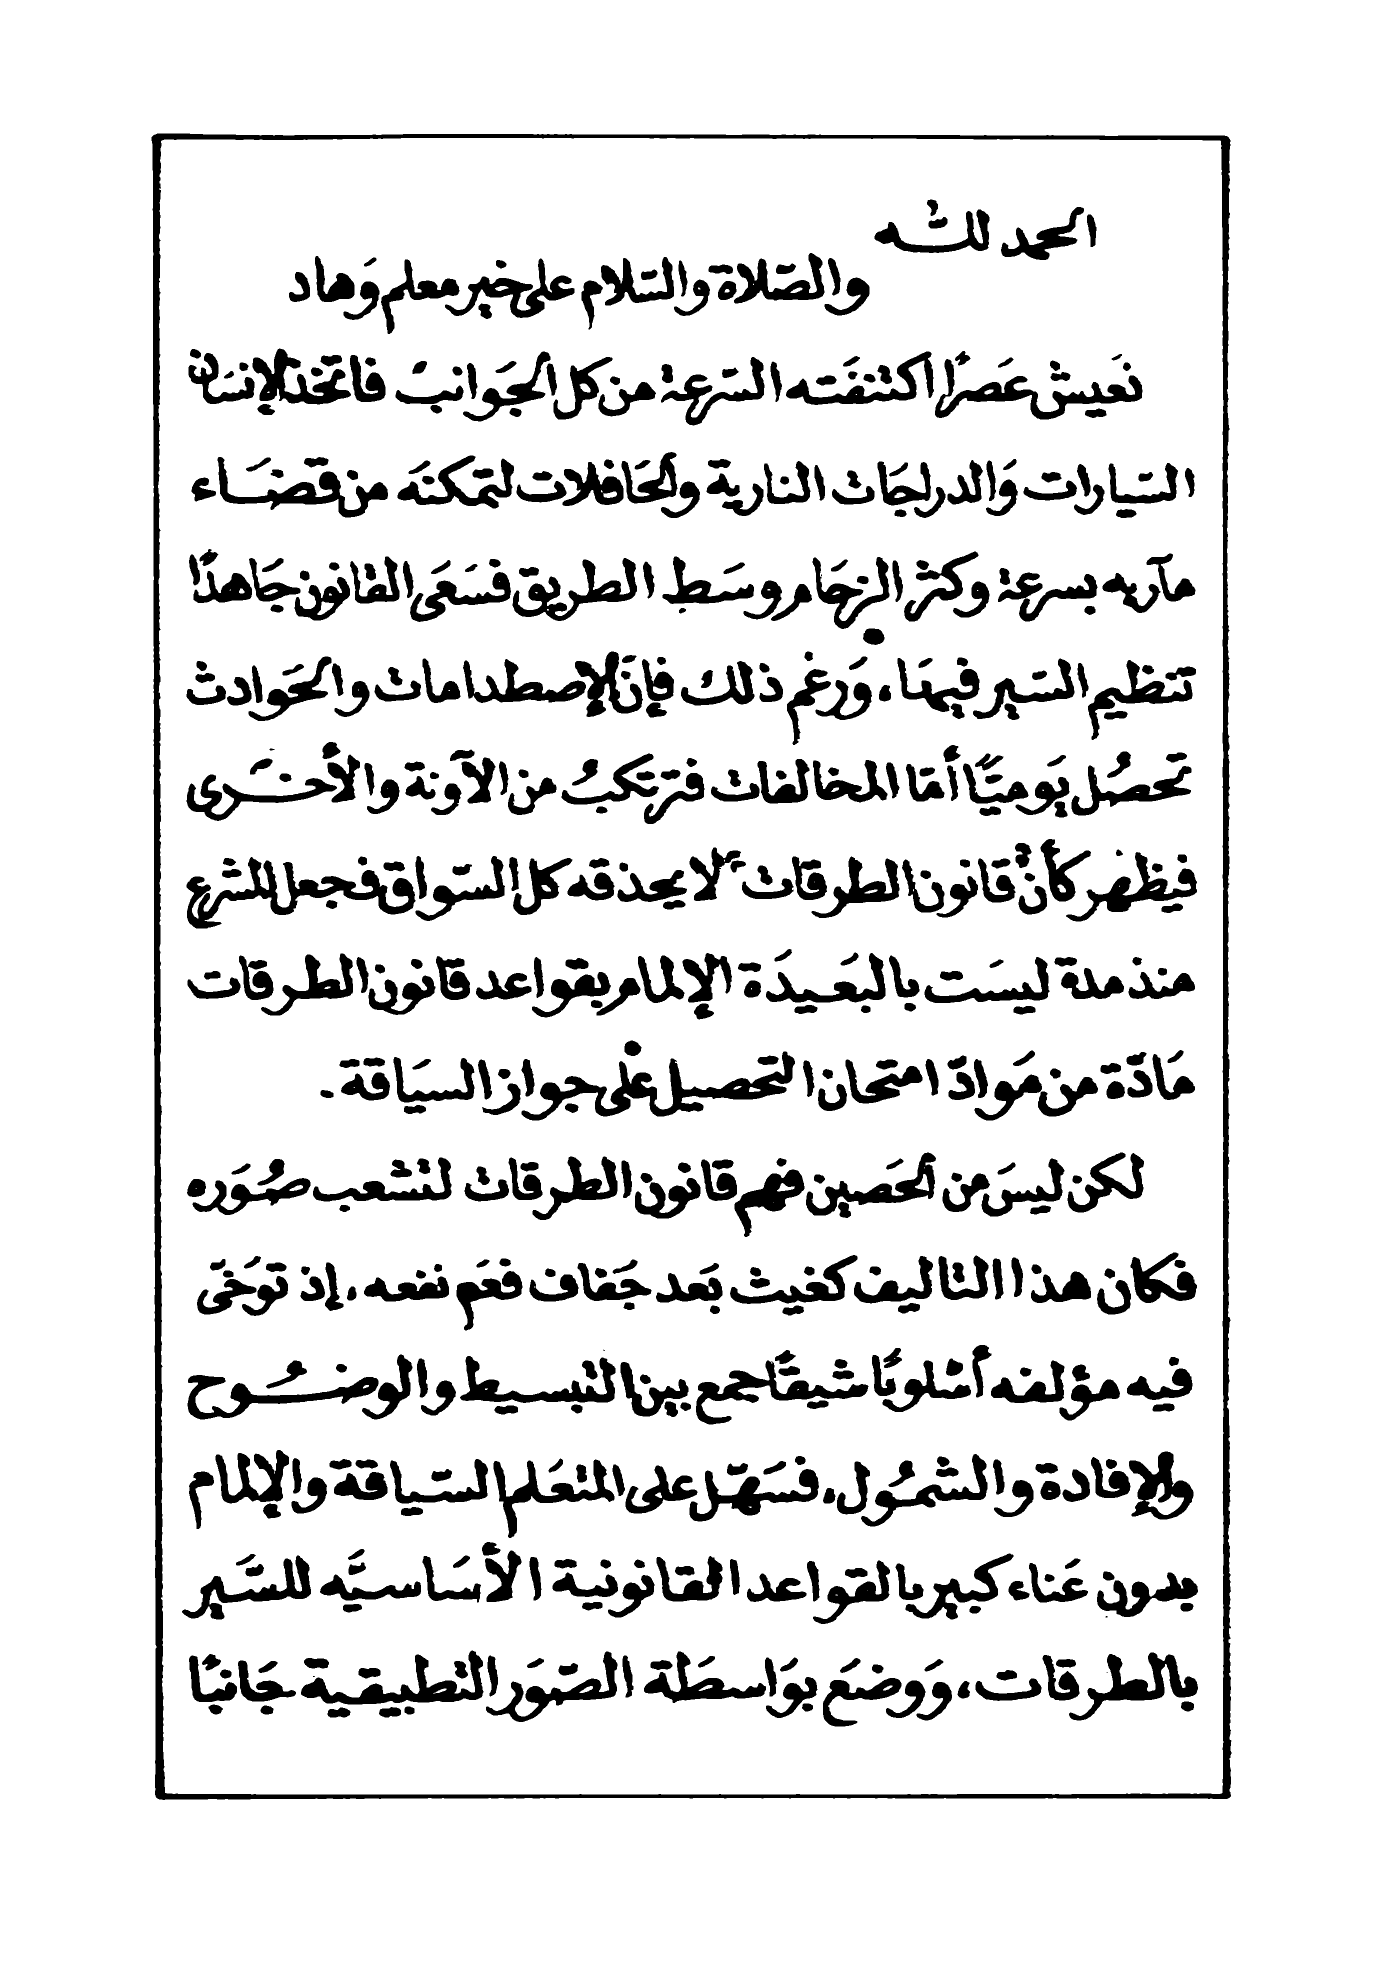 الحمد للّه
والصّلاة والسّلام على خير معلم وَهاد
نَعيش عَصرًا اكتنفَته السّرعة من كل الجَوانب فاتخذ الإنسَان
السّيارات وَالدراجَات النارية والحَافلات لتمكنَه من قضَاء
مآربه بسرعة وكثر الزحَام وسَط الطريق فسَعَى القانون جَاهدًا
تنظيم السّير فيهَا، وَرغم ذلك فإنّ الإصطدامات والحَوادث
تحصُل يَوميًّا أمّا المخالفات فترتكبُ من الآونة والأخرى
فيظهر كأنّ قانون الطرقات لا يحذقه كل السّواق فجعل المشرع
منذ مدة ليسَت بالبَعيدَة الإلمام بقواعد قانون الطرقات
مَادّة من مَوادّ امتحان التحصيل على جواز السيَاقة.
لكن ليسَ من الحَصين فهم قانون الطرقات لتشعب صُوَره
فكان هذا التاليف كغيث بَعد جَفاف فعَم نفعه، إذ توَخّى
فيه مؤلفه أسْلوبًا شيقًا جمع بين التبسيط والوضُوح
والإفادة والشّمُول، فسَهّل على المتعَلم السّياقة والإلمام
بدون عَناء كبير بالقواعد القانونية الأسَاسيَّه للسَّير
بالطرقات، وَوضعَ بوَاسطَة الصّوَر التطبيقية جَانبًا